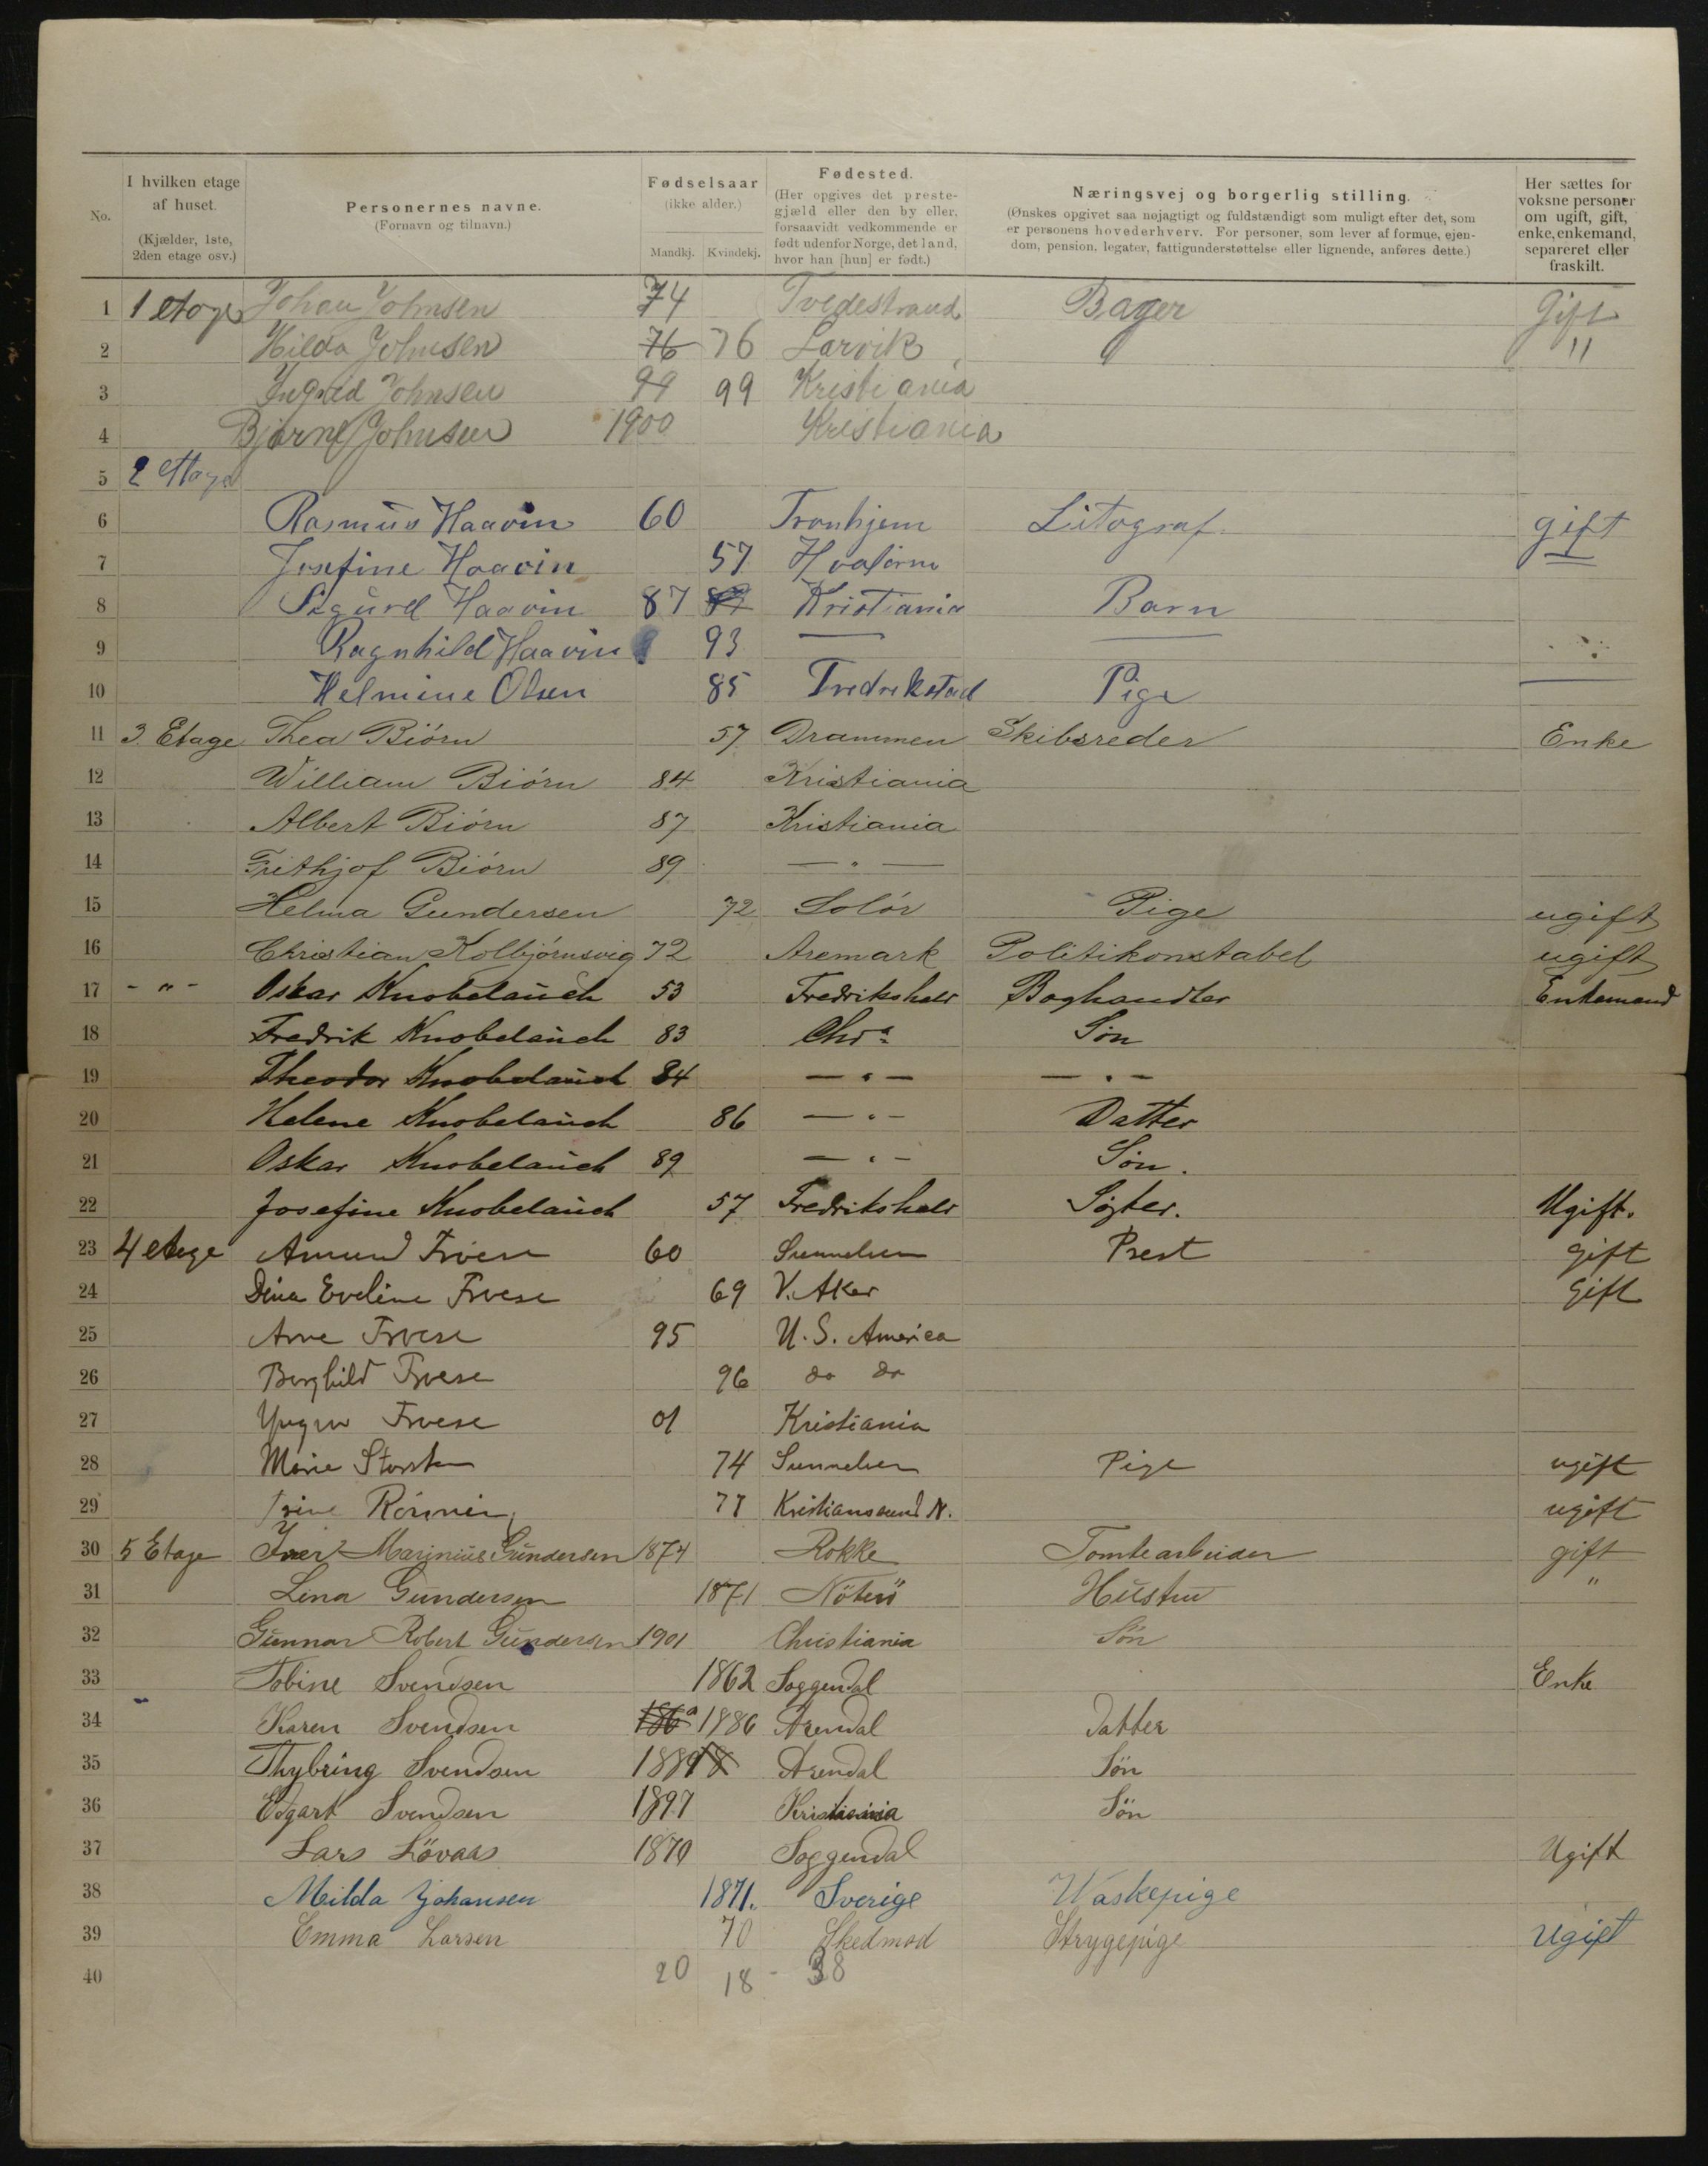 No. I hvilken etage af huset. (Kjælder, 1ste, 2den etage osv.) Personernes navne. (Fornavn og tilnavn.) Fødselsaar (ikke alder.) Mandkj. Kvindekj. Fødested. (Her opgives det prestegjæld eller den by eller, forsaavidt vedkommende er født udenfor Norge, det land, hvor han [hun] er født.) Næringsvej og borgerlig stilling. (Ønskes opgivet saa nøjagtigt og fuldstændigt som muligt efter det, som er personens hovederhverv. For personer, som lever af formue, ejendom, pension, legater, fattigunderstøttelse eller lignende, anføres dette.) Her sættes for voksne personer om ugift, gift, enke, enkemand, separeret eller fraskilt.
1 1 etage Johan Johnsen 74 Tvedestrand Bager Gift
2 Hilda Johnsen 76 76 Larvik "
3 Ingrid Johnsen 99 99 Kristiania
4 Bjarne Johnsen 1900 Kristiania
5 2 etage
6 Rasmus Haavin 60 Tronhjem Litograf gift
7 Josefine Haavin 57 —
8 Sigurd Haavin 87 Kristiania Barn
9 Ragnhild Haavin 93 — —
10 Helmine Olsen 85 Fredrikstad Pige —
11 3 Etage Thea Biörn 57 Drammen Skibsreder Enke
12 William Biörn 84 Kristiania
13 Albert Biörn 87 Kristiania
14 Frithjof Biörn 89 — " —
15 Helma Gundersen 72 Solör Pige ugift
16 Christian Kolbjörnsvig 72 Aremark Politikonstabel ugift
17 - " - Oskar Knobelauch 53 Fredrikshald Boghandler Enkemand
18 Fredrik Knobelauch 83 Chra Søn
19 Theodor Knobelauch 84 — " — — " —
20 Helene Knobelauch 86 — " — Datter
21 Oskar Knobelauch 89 — " — Søn.
22 Josefine Knobelauch 57 Fredrikshald Søster. Ugift.
23 4 etage Amund 60 Prest gift
24 Dina Eveline Froese 69 V. Aker Gift
25 Arne Froese 95 U. S. America
26 Borghild Froese 96 do do
27 Froese 01 Kristiania
28 Marie 74 Pige ugift
29 77 Kristianssund N. ugift
30 5 Etage Iver Marinius Gundersen 1874 Rokke Tomtearbeider gift
31 Lina Gundersen 1871 Nöterö Hustru "
32 Gunnar Robert Gundersen 1901 Christiania Sön
33 Tobine Svendsen 1862 Soggendal Enke
34 Karen Svendsen 1886 Arendal Datter
35 Thybring Svendsen 1889 Arendal Sön
36 Edgart Svendsen 1897 Kristiania Sön
37 Lars Lövaas 1870 Soggendal Ugift
38 Milda Johansen 1871. Sverige Waskepige
39 Emma Larsen 70 Skedmod Strygepige Ugift
40 20 18 - 38